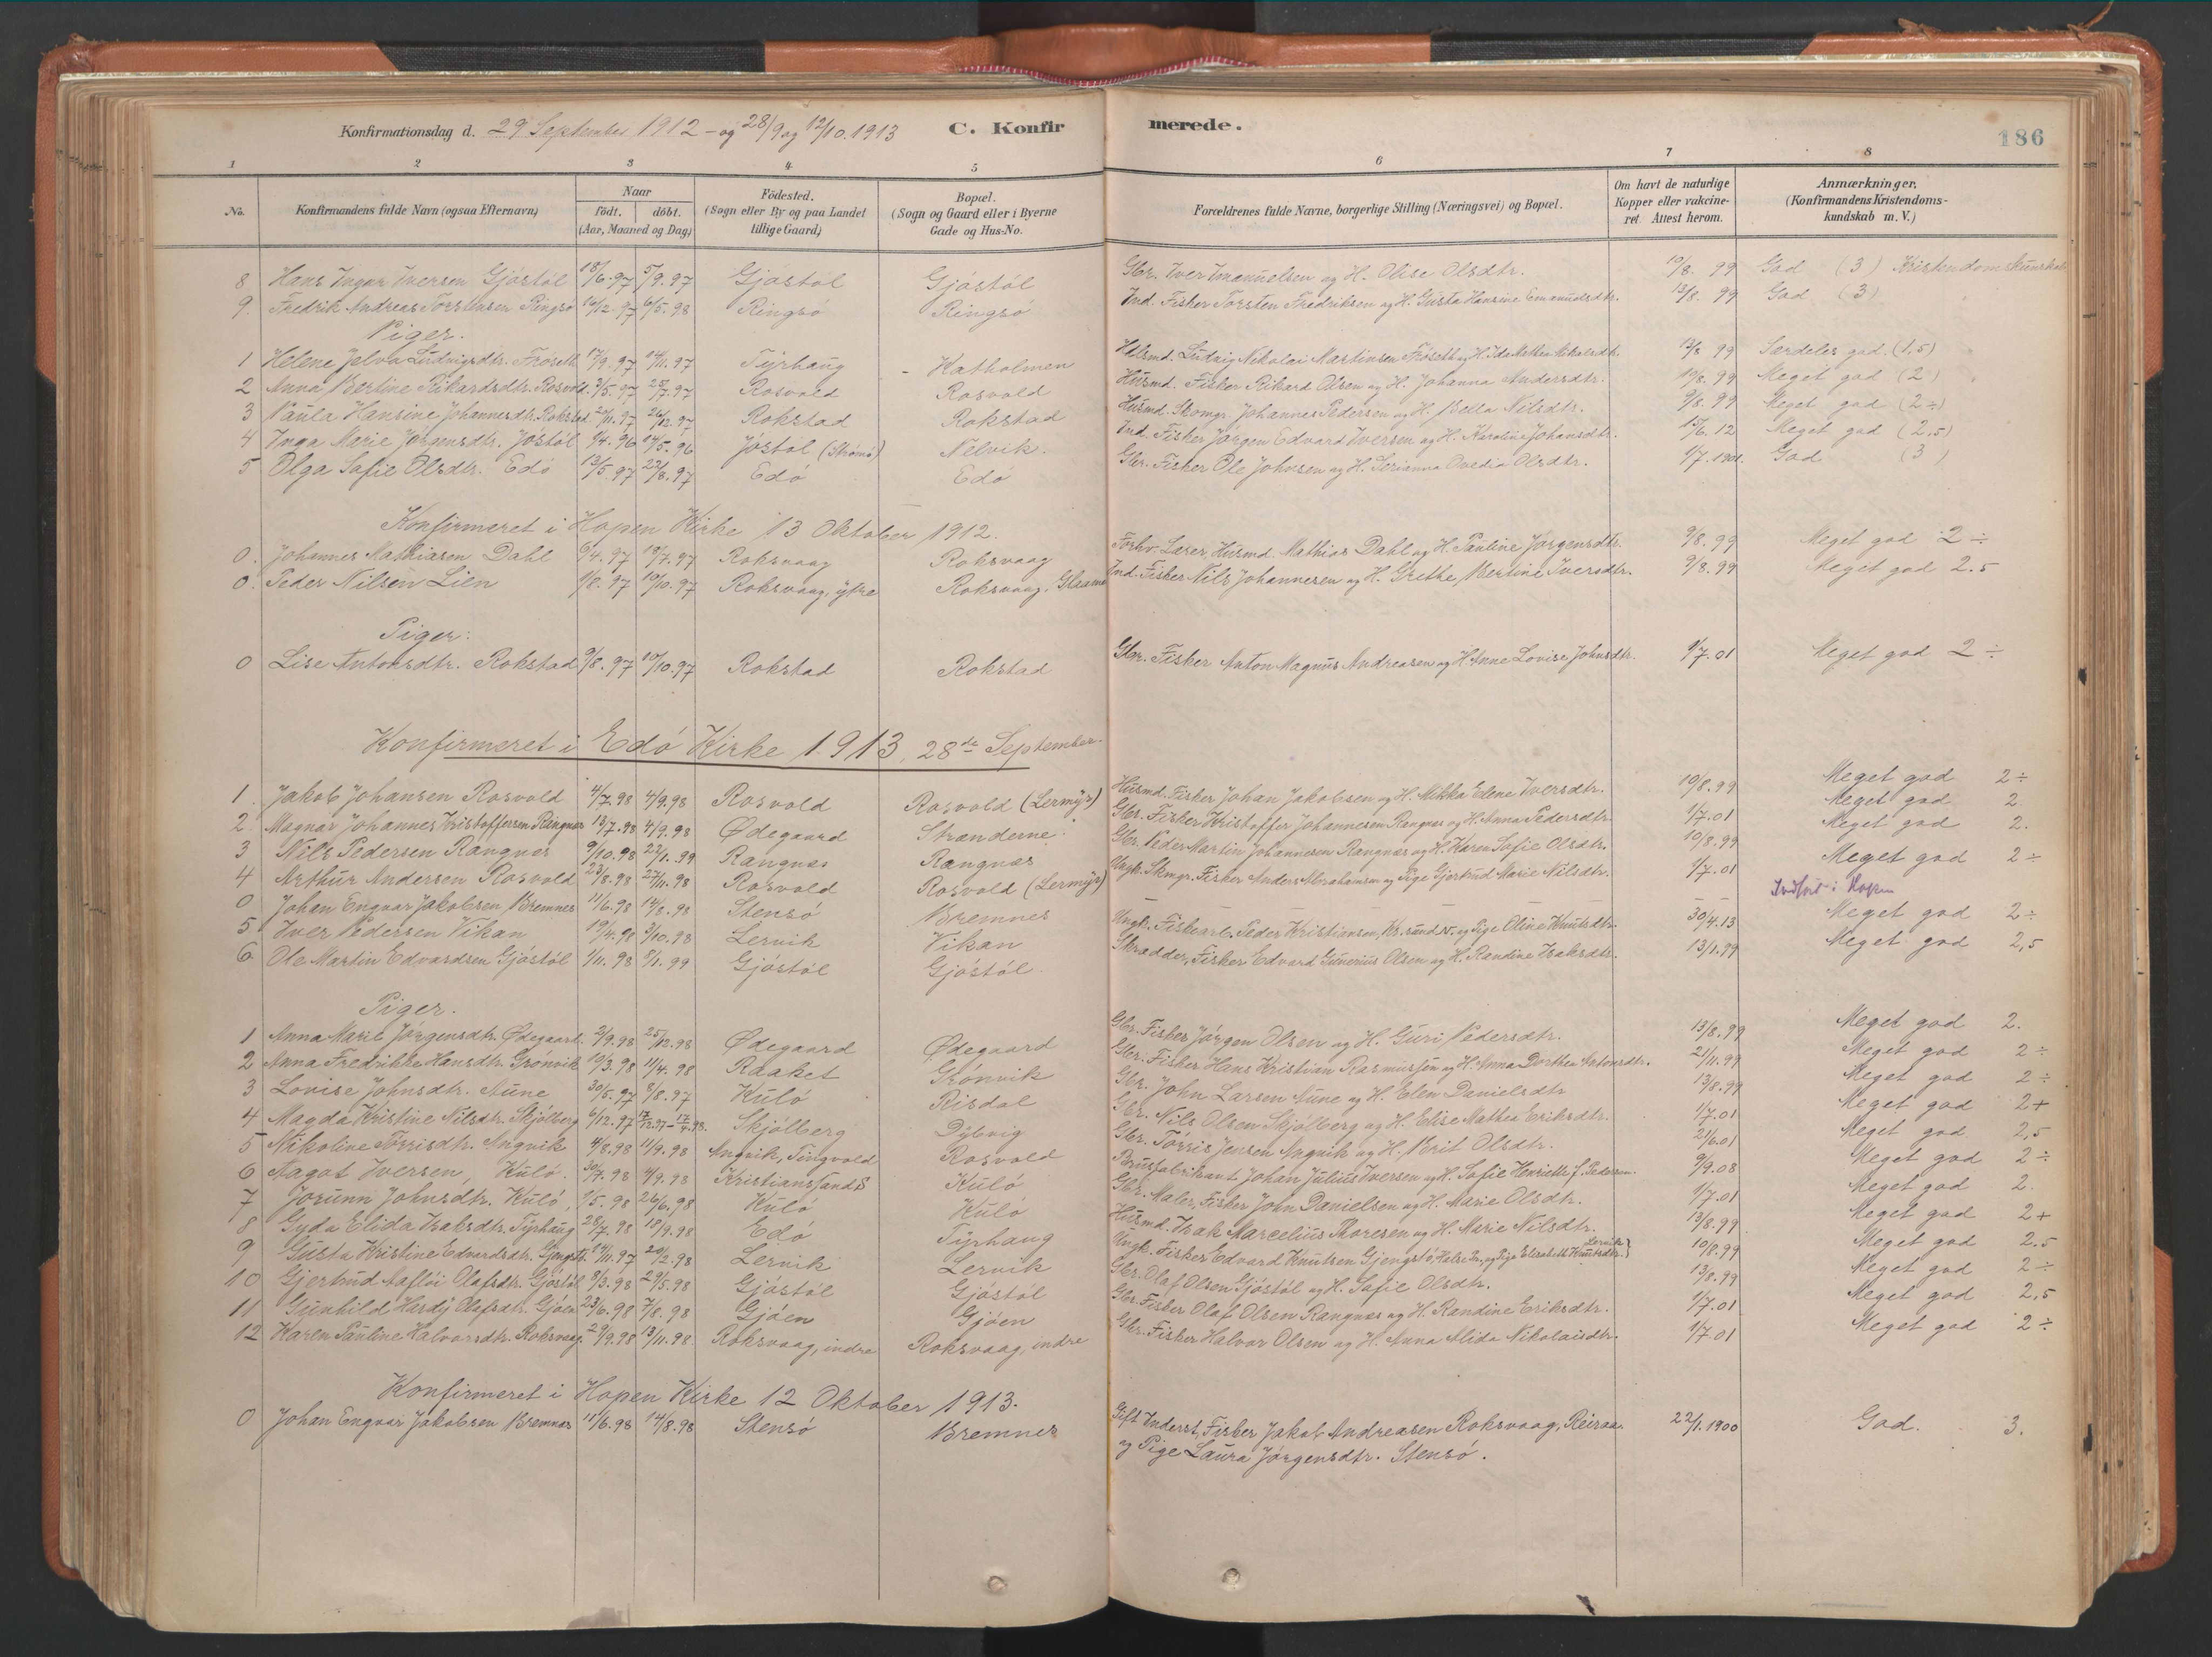 Konfirmationsdag d. 29 September 1912 - og 28/9 og 12/10. 1913 C. Konfirmerede. 186
1 2 3 4 5 6 7 8
No. Konfirmandens fulde Navn (ogsaa Efternavn) Naar født. døbt. (Aar, Maaned og Dag) Födested. (Sogn eller By og paa Landet tillige Gaard) Bopæl. (Sogn og Gaard eller i Byerne Gade og Hus-No. Forældrenes fulde Navne, borgerlige Stilling (Næringsvei) og Bopæl. Om havt de naturlige Kopper eller vakcineret. Attest herom. Anmærkninger. (Konfirmandens Kristendomskundskab m. V.)
8 Hans Ingvar Iversen Gjøstøl 18/6.97 5/9.97 Gjøstøl Gjøstøl Gbr. Iver Emanuelsen og H. Olise Olsdtr. 10/8. 99 God (3) Kristendomskunskab
9. Fredrik Andreas Torstensen Ringsø 16/12.97 6/5.98 Ringsø Ringsø Ind. Fisker Torsten Fredriksen og H. Gusta Hansine Emanuelsdtr. 13/8. 99 God (3)
Piger.
1 Helene Jelva Ludvigsdtr. Frøseth 17/9.97 14/11.97 Tyrhaug - Katholmen Husmd. Ludvig Nikolai Martinsen Frøseth og H. Ida Mathea Nikolaisdtr. 13/8 99 Særdeles god. (1,5)
2 Anna Bertine Rikardsdtr. Rosvold 3/5.97 25/7.97 Rosvold Rosvold Husmd. Fisker Rikard Olsen og H. Johanna Andersdtr. 10/8.99 Meget god (2)
3 Paula Hansine Johannesdtr. Rokstad 21/11.97 26/12.97 Rokstad Rokstad Husmd. Skomgr. Johannes Pedersen og H. Bella Nilsdtr. 9/8.99 Meget god (2÷)
4 Inga Marie Jørgensdtr. Jøstøl 9/4.96 14/5.96 Jøstøl (Strømø) Nelvik. Ind. Fisker Jørgen Edvard Iversen og H. Karoline Johansdtr. 15/6.12 Meget god (2,5)
5 Olga Safie Olsdtr. Edø 13/5.97 22/8.97 Edø Edø Gbr. Fisker Ole Johnsen og H. Serianna Ovedia Olsdtr. 1/7.1901. God (3)
Konfirmeret i Hopen Kirke 13 Oktober 1912.
0. Johannes Mathiasen Dahl 9/4.97 18/7.97 Roksvaag Roksvaag Forhv. Lærer, Husmd. Mathias Dahl og H. Pauline Jørgensdtr. 9/8.99 Meget god 2÷
0. Peder Nilsen Lien 1/8.97 10/10.97 Roksvaag, ytre Roksvaag, Glaamen Ind. Fisker Nils Johannesen og H. Grethe Bertine Iversdtr. 9/8.99 Meget god 2.5
Piger:
0 Lise Antonsdtr. Rokstad 9/8.97 10/10.97 Rokstad Rokstad Gbr. Fisker Anton Magnus Andreasen og H. Anne Lovise Johnsdtr. 1/7.01 Meget god 2÷
Konfirmeret i Edø Kirke 1913, 28de September.
1. Jakob Johansen Rosvold 4/7.98 4/9.98 Rosvold Rosvold (Lermyr) Husmd. Fisker Johan Jakobsen og H. Mikka Elene Iversdtr. 10/8.99 Meget god 2÷
2. Magnar Johannes Kristoffersen Ringnes 13/7.98 4/9.98 Ødegaard Stranderne. Gbr. Fisker Kristoffer Johannesen Rangnæs og H. Anna Pedersdtr. 1/7.01 Meget god 2.
3 Nils Pedersen Rangnes 9/10.98 22/1.99 Rangnæs Rangnæs Gbr. Peder Martin Johannesen Rangnæs og H. Karen Sofie Olsdtr. 10/8.99 Meget god 2.
4 Arthur Andersen Rosvold 23/8.98 27/11.98 Rosvold Rosvold (Lermyr) Ungk. Skmgr. Fisker Anders Abrahamsen og Pige Gjertrud Marie Nilsdtr. 1/7.01 Meget god 2÷
0 Johan Engvar Jakobsen Bremnes 11/6.98 14/8.98 Stensø Bremnes Indført i Hopen
5 Iver Pedersen Vikan 19/4.98 3/10.98 Lervik Vikan Ungk. Fisker Peder Kristiansen, Kr.sund N. og Pige Oline Knutsdtr. 30/4.13 Meget god 2÷
6 Ole Martin Edvardsen Gjøstøl 1/11.98 8/1.99 Gjøstøl Gjøstøl Skrædder, Fisker Edvard Gunerius Olsen og H. Randine Isaksdtr. 13/1.99 Meget god 2,5
Piger.
1 Anna Marie Jørgensdtr. Ødegaard 2/9.98 25/12.98 Ødegaard Ødegaard Gbr. Fisker Jørgen Olsen og H. Guri Pedersdtr. 13/8.99 Meget god 2.
2 Anna Fredrikke Hansdtr. Grønvik 10/3.98 11/4.98 Raaket Grønvik Gbr. Fisker Hans Kristian Rasmussen og H. Anna Dorthea Antonsdtr. 21/11.99 Meget god 2÷
3 Lovise Johnsdtr. Aune 30/5.97 8/8.97 Kulø Risdal Gbr. John Larsen Aune og H. Elen Danielsdtr 13/8.99 Meget god 2÷
4 Magda Kristine Nilsdtr. Skjølberg 6/12.97 17/12.97-17/4.98. Skjølberg Dybvig Gbr. Nils Olsen Skjølberg og H. Elise Mathea Eriksdtr. 1/7.01 Meget god 2+
5 Nikoline Torrisdtr. Angvik 4/8.98 11/9.98 Angvik, Tingvold Rosvold Gbr. Torris Jensen Angvik og H. Berit Olsdtr. 21/6.01 Meget god 2,5
6 Aagot Iversen, Kulø. 30/7.98 4/9.98 Kristianssand S Kulø Brusfabrikant Johan Julius Iversen og H. Sofie Henriette f. Pedersen. 9/9.08 Meget god 2÷
7 Jorunn Johnsdtr. Kulø, 1/5.98 26/6.98 Kulø Kulø Gbr. Maler, Fisker John Danielsen og H. Marie Olsdtr. 1/7.01 Meget god 2.
8 Gyda Elida Isaksdtr. Tyrhaug 28/7.98 18/9.98 Edø Tyrhaug Husmd. Isak Marcelius Thoresen og H. Marie Nilsdtr. 13/8.99 Meget god 2+
9 Gusta Kristine Edvardsdtr. Gjengstø 14/11.97 20/2.98 Lervik Lervik Ungk. Fisker Edvard Knutsen Gjengstø, Halse Pr., og Pige Elisabeth Knutsdtr. Lervik 10/8.99 Meget god 2.5
10 Gjertrud Asfløi Olafsdtr. Gjøstøl 8/3.98 29/5.98 Gjøstøl Gjøstøl Gbr. Olaf Olsen Gjøstøl og H. Safie Olsdtr. 13/8.99 Meget god 2÷
11 Gunhild Hardy Olafsdtr. Gjøen 23/6.98 7/8.98 Gjøen Gjøen Gbr. Fisker Olaf Olsen Rangnæs og H. Randine Eriksdtr. 1/7.01 Meget god 2,5
12 Karen Pauline Halvorsdtr. Roksvaag. 29/9.98 13/11.98. Roksvaag, indre Roksvaag, indre Gbr. Fisker Halvor Olsen og H. Anna Alida Nikolaisdtr. 1/7.01 Meget god 2÷
Konfirmeret i Hopen Kirke 12 Oktober 1913.
0 Johan Engvar Jakobsen Bremnes 11/6.98 14/8.98 Stensø Bremnes Gift Inderst, Fisker Jakob Andreasen Roksvaag, Reiraa 22/1.1900 God. 3.
og Pige Laura Jørgensdtr. Stensø.